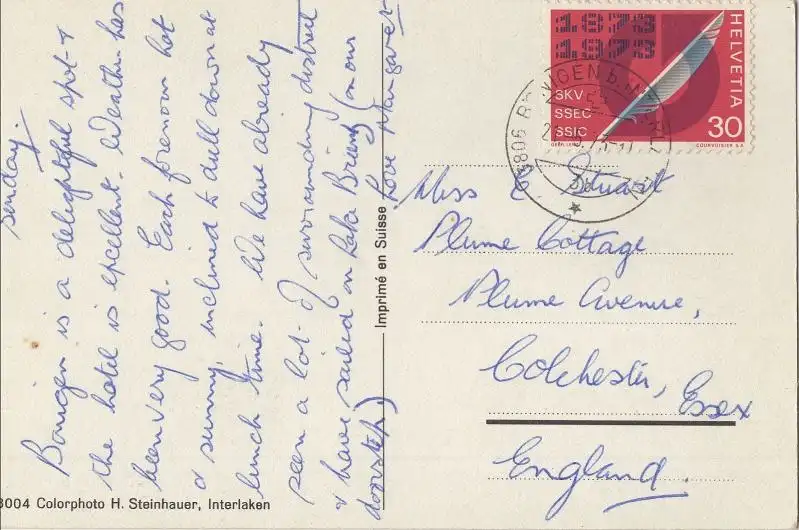 Sunday.
Bonigen is a delightful spot &
the hotel is excellent. Weather has
been very good. Each forenoon hot
& sunny, inclined to dull down at
lunch time. We have already
seen a lot of surrounding district
& have sailed on Lake Brienz (on our
doorstep)
Love Margaret
Imprimé en Suisse
3004 Colorphoto H. Steinhauer, Interlaken
1873
1973
HELVETIA
SKV
SSEC
SSIC
30
COURVOISIER S.A.
3806
Miss E Stuart
Plume Cottage
Plume Avenue,
Colchester, Essex
England.